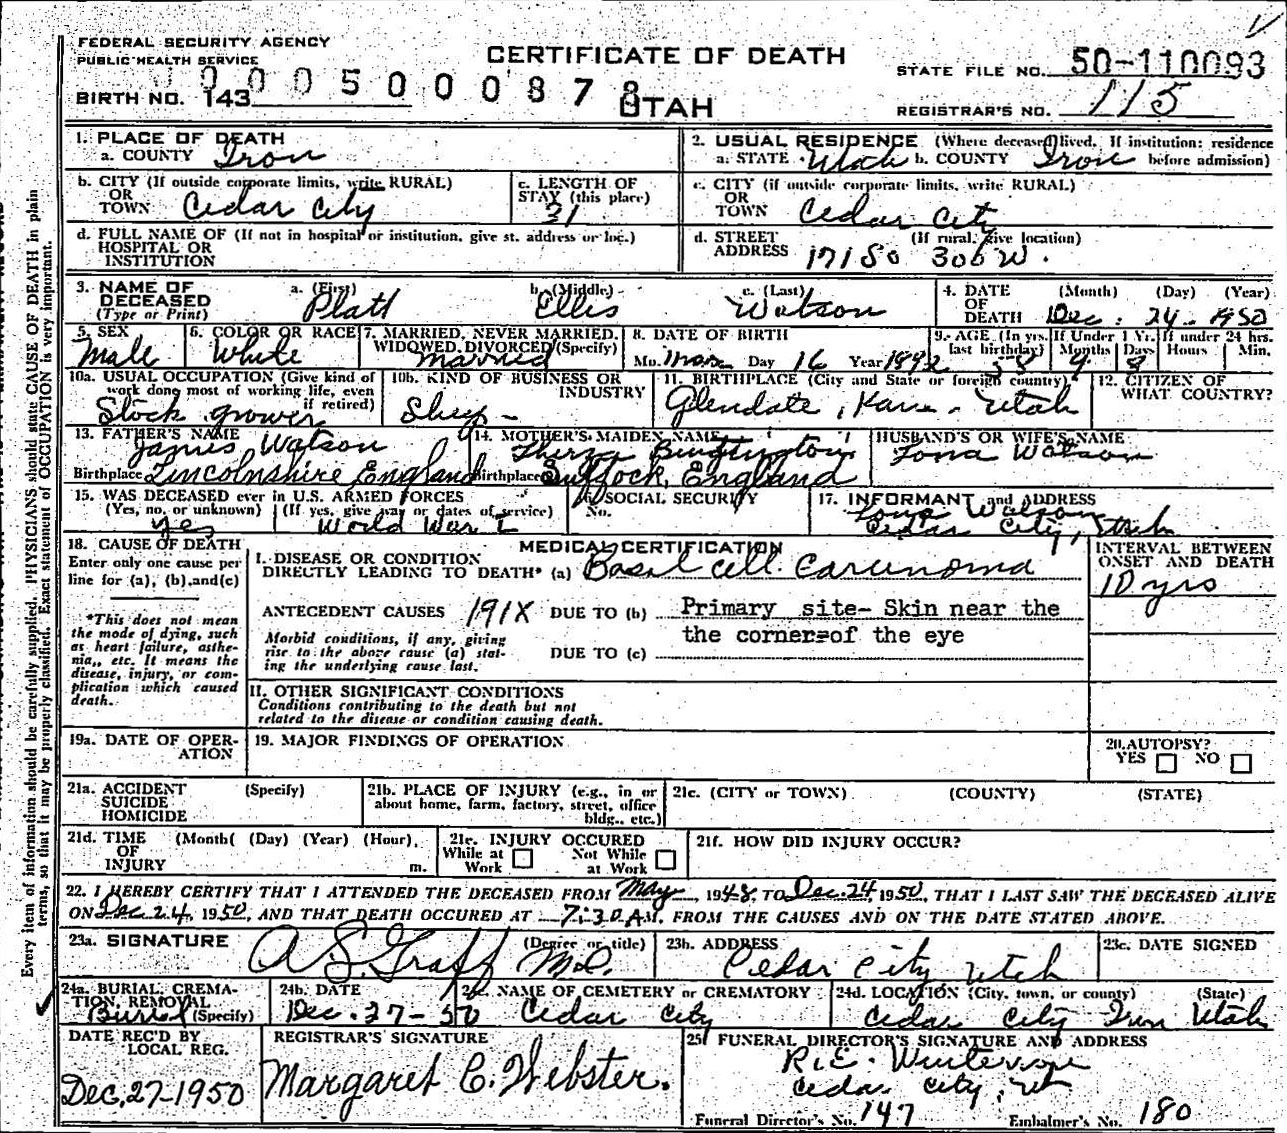 FEDERAL SECURITY AGENCY
PUBLIC HEALTH SERVICE
CERTIFICATE OF DEATH
STATE FILE NO. 50-110093
0005000878
BIRTH NO. 143
UTAH
REGISTRAR'S NO. 115
1. PLACE OF DEATH
a. COUNTY Iron
2. USUAL RESIDENCE (Where deceased lived. If institution: residence
a. STATE Utah b. COUNTY Iron before admission)
b. CITY (If outside corporate limits, write RURAL)
OR
TOWN Cedar City
c. LENGTH OF
STAY (this place)
31
c. CITY (if outside corporate limits, write RURAL)
OR
TOWN Cedar City
d. FULL NAME OF (If not in hospital or institution, give st. address or loc.)
HOSPITAL OR
INSTITUTION
d. STREET (If rural, give location)
ADDRESS 171 So 300 W.
3. NAME OF DECEASED
(Type or Print)
a. (First) Platt
b. (Middle) Ellis
c. (Last) Watson
4. DATE OF DEATH (Month) (Day) (Year)
Dec. 24. 1950
5. SEX
Male
6. COLOR OR RACE
White
7. MARRIED, NEVER MARRIED,
WIDOWED, DIVORCED (Specify)
Married
8. DATE OF BIRTH
Mo. Mar Day 16 Year 1892
9. AGE (In yrs. last birthday) 58
If Under 1 Yr. Months 9 Days 8
If under 24 hrs. Hours Min.
10a. USUAL OCCUPATION (Give kind of
work done most of working life, even
if retired)
Stock grower
10b. KIND OF BUSINESS OR
INDUSTRY
Sheep -
11. BIRTHPLACE (City and State or foreign country)
Glendale, Kane - Utah
12. CITIZEN OF
WHAT COUNTRY?
13. FATHER'S NAME
James Watson
Birthplace Lincolnshire England
14. MOTHER'S MAIDEN NAME
Birthplace Suffock, England
HUSBAND'S OR WIFE'S NAME
Iona Watson
15. WAS DECEASED ever in U.S. ARMED FORCES
(Yes, no, or unknown) (If yes, give war or dates of service)
yes World War I
16. SOCIAL SECURITY
No.
17. INFORMANT and ADDRESS
Iona Watson
Cedar City, Utah
18. CAUSE OF DEATH
Enter only one cause per
line for (a), (b), and (c)
*This does not mean
the mode of dying, such
as heart failure, asthe-
nia, etc. It means the
disease, injury, or com-
plication which caused
death.
MEDICAL CERTIFICATION
I. DISEASE OR CONDITION
DIRECTLY LEADING TO DEATH* (a) Basal cell. Carcinoma
INTERVAL BETWEEN
ONSET AND DEATH
10 yrs
ANTECEDENT CAUSES 191X DUE TO (b) Primary site- Skin near the
the corner=of the eye
Morbid conditions, if any, giving
rise to the above cause (a) stat-
ing the underlying cause last.
DUE TO (c)
II. OTHER SIGNIFICANT CONDITIONS
Conditions contributing to the death but not
related to the disease or condition causing death.
19a. DATE OF OPER-
ATION
19. MAJOR FINDINGS OF OPERATION
20. AUTOPSY?
YES NO
21a. ACCIDENT (Specify)
SUICIDE
HOMICIDE
21b. PLACE OF INJURY (e.g., in or
about home, farm, factory, street, office
bldg., etc.)
21c. (CITY or TOWN) (COUNTY) (STATE)
21d. TIME (Month( (Day) (Year) (Hour),
OF
INJURY m.
21e. INJURY OCCURED
While at Work Not While at Work
21f. HOW DID INJURY OCCUR?
22. I HEREBY CERTIFY THAT I ATTENDED THE DECEASED FROM May, 1948, TO Dec. 24 1950, THAT I LAST SAW THE DECEASED ALIVE
ON Dec 24, 1950, AND THAT DEATH OCCURED AT 7:30 A.M. FROM THE CAUSES AND ON THE DATE STATED ABOVE.
23a. SIGNATURE (Degree or title)
A. L. Graff M.D.
23b. ADDRESS
Cedar City Utah
23c. DATE SIGNED
24a. BURIAL, CREMA-
TION, REMOVAL
(Specify)
Burial
24b. DATE
Dec. 27-50
24c. NAME OF CEMETERY or CREMATORY
Cedar City
24d. LOCATION (City, town, or county) (State)
Cedar City Iron Utah
DATE REC'D BY
LOCAL REG.
Dec, 27-1950
REGISTRAR'S SIGNATURE
Margaret C. Webster.
25. FUNERAL DIRECTOR'S SIGNATURE AND ADDRESS
R.E.
Cedar City, Ut
Funeral Director's No. 147 Embalmer's No. 180
Every item of information should be carefully supplied. PHYSICIANS should state CAUSE OF DEATH in plain
terms, so that it may be properly classified. Exact statement of OCCUPATION is very important.